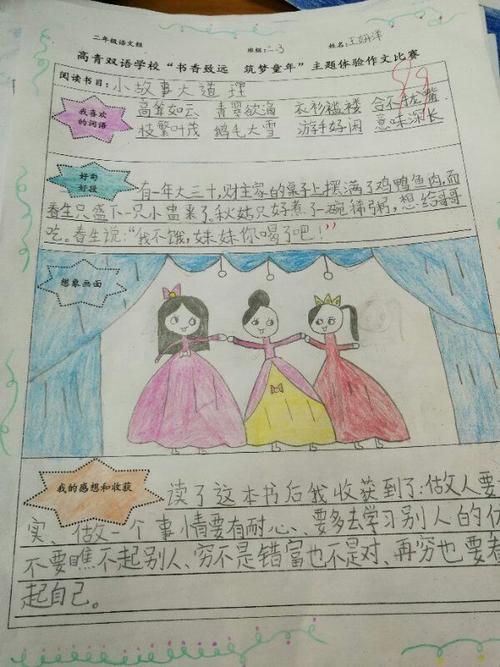 二年级语文组 班级：二.3 姓名：王妍洋
高青双语学校“书香致远 筑梦童年”主题体验作文比赛
阅读书目：小故事大道理
99
我喜欢的词语
高耸如云 青翠欲滴 衣衫褴褛 合不拢嘴
枝繁叶茂 鹅毛大雪 游手好闲 意味深长
好句好段
有一年大三十，财主家的桌子上摆满了鸡鸭鱼肉，而
春生只盛下一只小盅来了。秋姑只好煮了一碗稀粥，想给哥哥
吃。春生说：“我不饿，妹妹你喝了吧！”
想象画面
我的感想和收获
读了这本书后我收获到了：做人要
实、做一个事情要有耐心、要多去学习别人的
不要瞧不起别人、穷不是错富也不是对、再穷也要看
起自己。